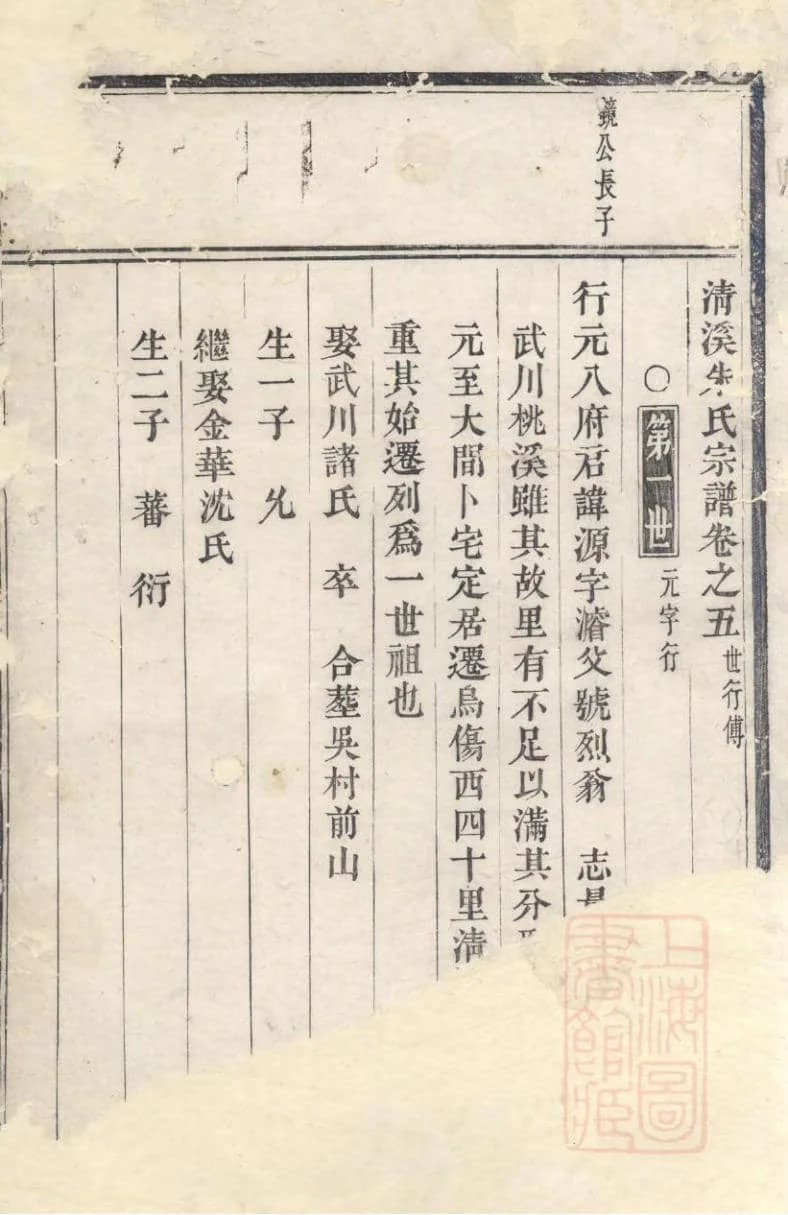 清溪朱氏宗譜卷之五 世行傳
〇第一世 元字行
鏡公長子
行元八府君諱源字濬父號烈翁 志
武川桃溪雖其故里有不足以滿其分
元至大間卜宅定居遷烏傷西四十里清
重其始遷列爲一世祖也
娶武川諸氏 卒 合塟吳村前山
生一子 允
繼娶金華沈氏
生二子 蕃 衍
上海圖書館藏